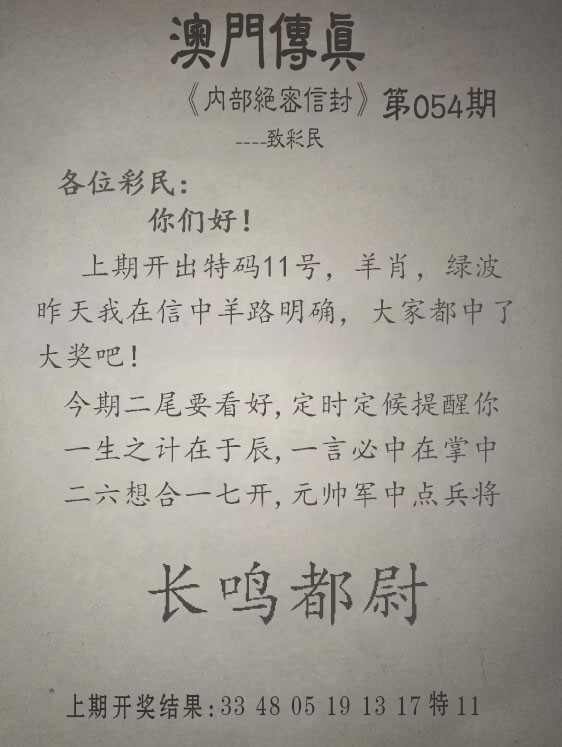 澳門傳真
《内部絕密信封》第054期
----致彩民
各位彩民:
你们好!
上期开出特码11号，羊肖，绿波
昨天我在信中羊路明确，大家都中了
大奖吧!
今期二尾要看好,定时定候提醒你
一生之计在于辰,一言必中在掌中
二六想合一七开,元帅军中点兵将
长鸣都尉
上期开奖结果:33 48 05 19 13 17特11